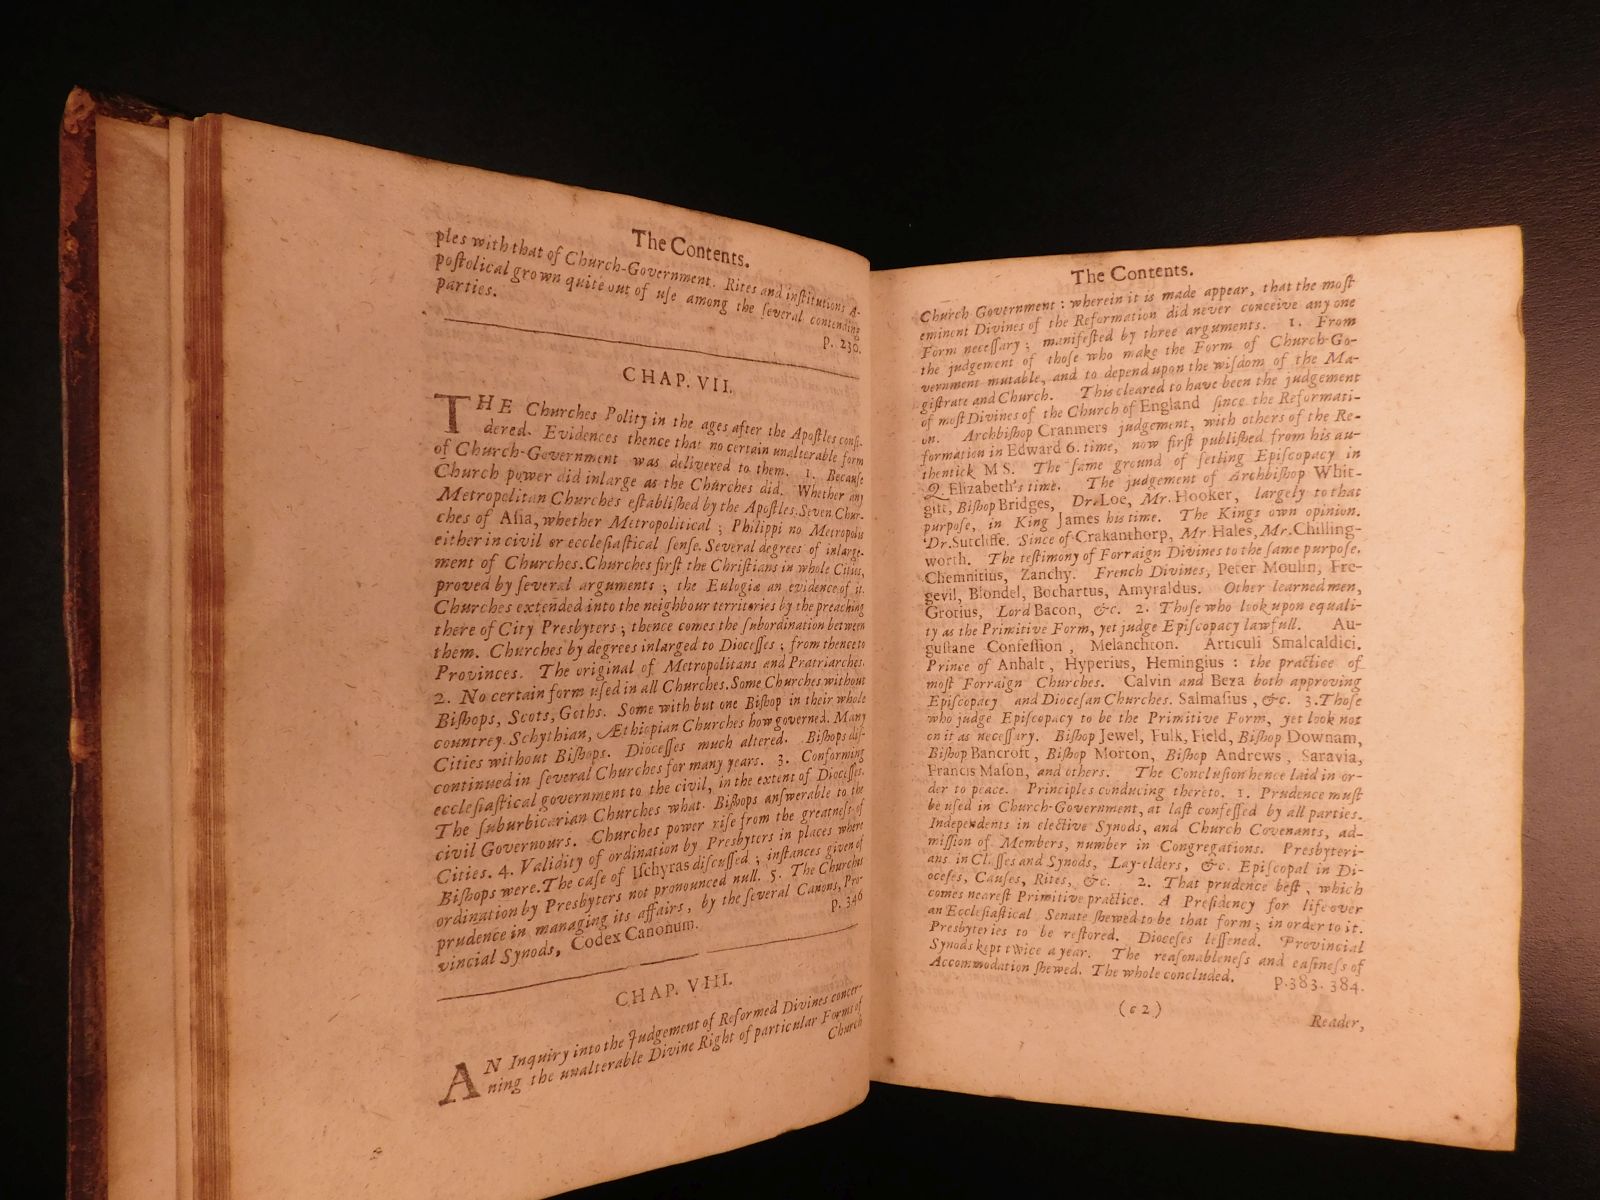 The Contents.
ples with that of Church-Government. Rites and institutions A-
postolical grown quite out of use among the several contending
parties.
p. 230.
CHAP. VII.
THE Churches Polity in the ages after the Apostles consi-
dered. Evidences thence that no certain unalterable form
of Church-Government was delivered to them. 1. Because
Church power did inlarge as the Churches did. Whether any
Metropolitan Churches established by the Apostles. Seven Chur-
ches of Asia, whether Metropolitical; Philippi no Metropolis
either in civil or ecclesiastical sense. Several degrees of inlarge-
ment of Churches. Churches first the Christians in whole Cities,
proved by several arguments; the Eulogiæ an evidence of it.
Churches extended into the neighbour territories by the preaching
there of City Presbyters; thence comes the subordination between
them. Churches by degrees inlarged to Diocesses; from thence to
Provinces. The original of Metropolitans and Pratriarches.
2. No certain form used in all Churches. Some Churches without
Bishops, Scots, Goths. Some with but one Bishop in their whole
countrey. Schythian, Æthiopian Churches how governed. Many
Cities without Bishops. Diocesses much altered. Bishops dis-
continued in several Churches for many years. 3. Conforming
ecclesiastical government to the civil, in the extent of Diocesses.
The suburbicarian Churches what. Bishops answerable to the
civil Governours. Churches power rise from the greatness of
Cities. 4. Validity of ordination by Presbyters in places where
Bishops were. The case of Ischyras discussed; instances given of
ordination by Presbyters not pronounced null. 5. The Churches
prudence in managing its affairs, by the several Canons, Pro-
vincial Synods, Codex Canonum.
p. 346
CHAP. VIII.
AN Inquiry into the Judgement of Reformed Divines concer-
ning the unalterable Divine Right of particular Forms of
Church
The Contents.
Church Government: wherein it is made appear, that the most
eminent Divines of the Reformation did never conceive any one
Form necessary; manifested by three arguments. 1. From
the judgement of those who make the Form of Church-Go-
vernment mutable, and to depend upon the wisdom of the Ma-
gistrate and Church. This cleared to have been the judgement
of most Divines of the Church of England since the Reformati-
on. Archbishop Cranmers judgement, with others of the Re-
formation in Edward 6. time, now first published from his au-
thentick MS. The same ground of setling Episcopacy in
Q. Elizabeth's time. The judgement of Archbishop Whit-
gift, Bishop Bridges, Dr. Loe, Mr. Hooker, largely to that
purpose, in King James his time. The Kings own opinion.
Dr. Sutcliffe. Since of Crakanthorp, Mr Hales, Mr. Chilling-
worth. The testimony of Forraign Divines to the same purpose.
Chemnitius, Zanchy. French Divines, Peter Moulin, Fre-
gevil, Blondel, Bochartus, Amyraldus. Other learned men,
Grotius, Lord Bacon, &c. 2. Those who look upon equali-
ty as the Primitive Form, yet judge Episcopacy lawfull. Au-
gustane Confession, Melanchton. Articuli Smalcaldici.
Prince of Anhalt, Hyperius, Hemingius: the practice of
most Forraign Churches. Calvin and Beza both approving
Episcopacy and Diocesan Churches. Salmasius, &c. 3. Those
who judge Episcopacy to be the Primitive Form, yet look not
on it as necessary. Bishop Jewel, Fulk, Field, Bishop Downam,
Bishop Bancroft, Bishop Morton, Bishop Andrews, Saravia,
Francis Mason, and others. The Conclusion hence laid in or-
der to peace. Principles conducing thereto. 1. Prudence must
be used in Church-Government, at last confessed by all parties.
Independents in elective Synods, and Church Covenants, ad-
mission of Members, number in Congregations. Presbyteri-
ans in Classes and Synods, Lay-elders, &c. Episcopal in Di-
oceses, Causes, Rites, &c. 2. That prudence best, which
comes nearest Primitive practice. A Presidency for life over
an Ecclesiastical Senate shewed to be that form; in order to it.
Presbyteries to be restored. Dioceses lessened. Provincial
Synods kept twice a year. The reasonableness and easiness of
Accommodation shewed. The whole concluded.
p. 383. 384.
(c 2)
Reader,